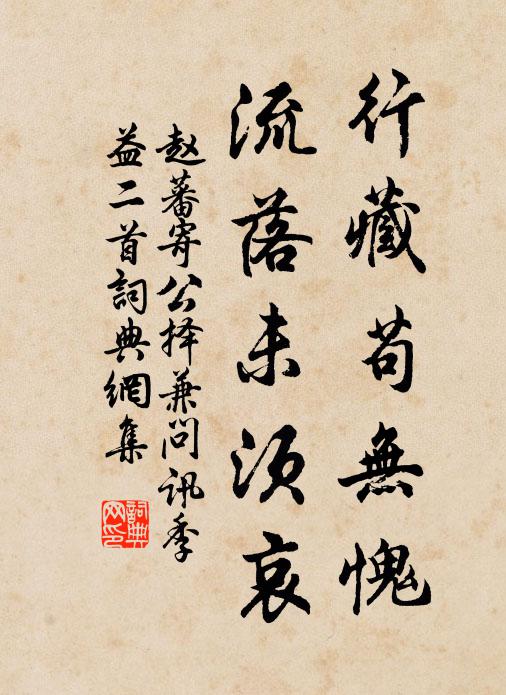 行藏苟無愧
流落未須哀
赵蕃寄公择兼问讯季
益二首詞典網集
詞典
网印